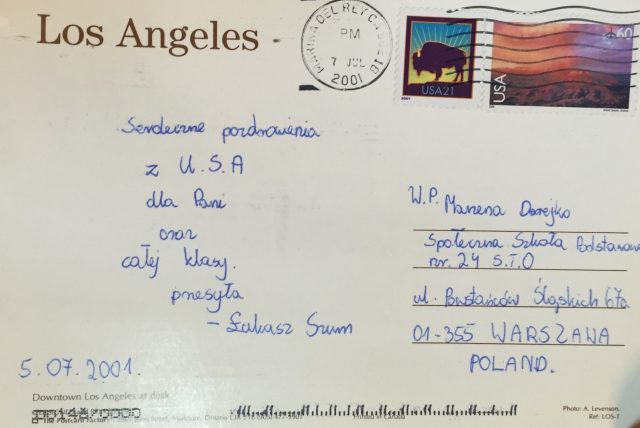 Los Angeles
MARINA DEL REY CA
PM
7 JUL
2001
USA21
USA
60
Serdeczne pozdrowienia
z U.S.A
dla Pani
oraz
całej klasy.
przesyła
– Łukasz Szum
5.07.2001.
W.P. Marzena Derejko
Społeczna Szkoła Podstawowa
nr. 24 S.T.O
ul. Powstańców Śląskich 67a
01-355 WARSZAWA
POLAND.
Downtown Los Angeles at dusk
The Postcard Factory
Printed in Canada
Photo: A. Levenson.
Ref: LOS-1